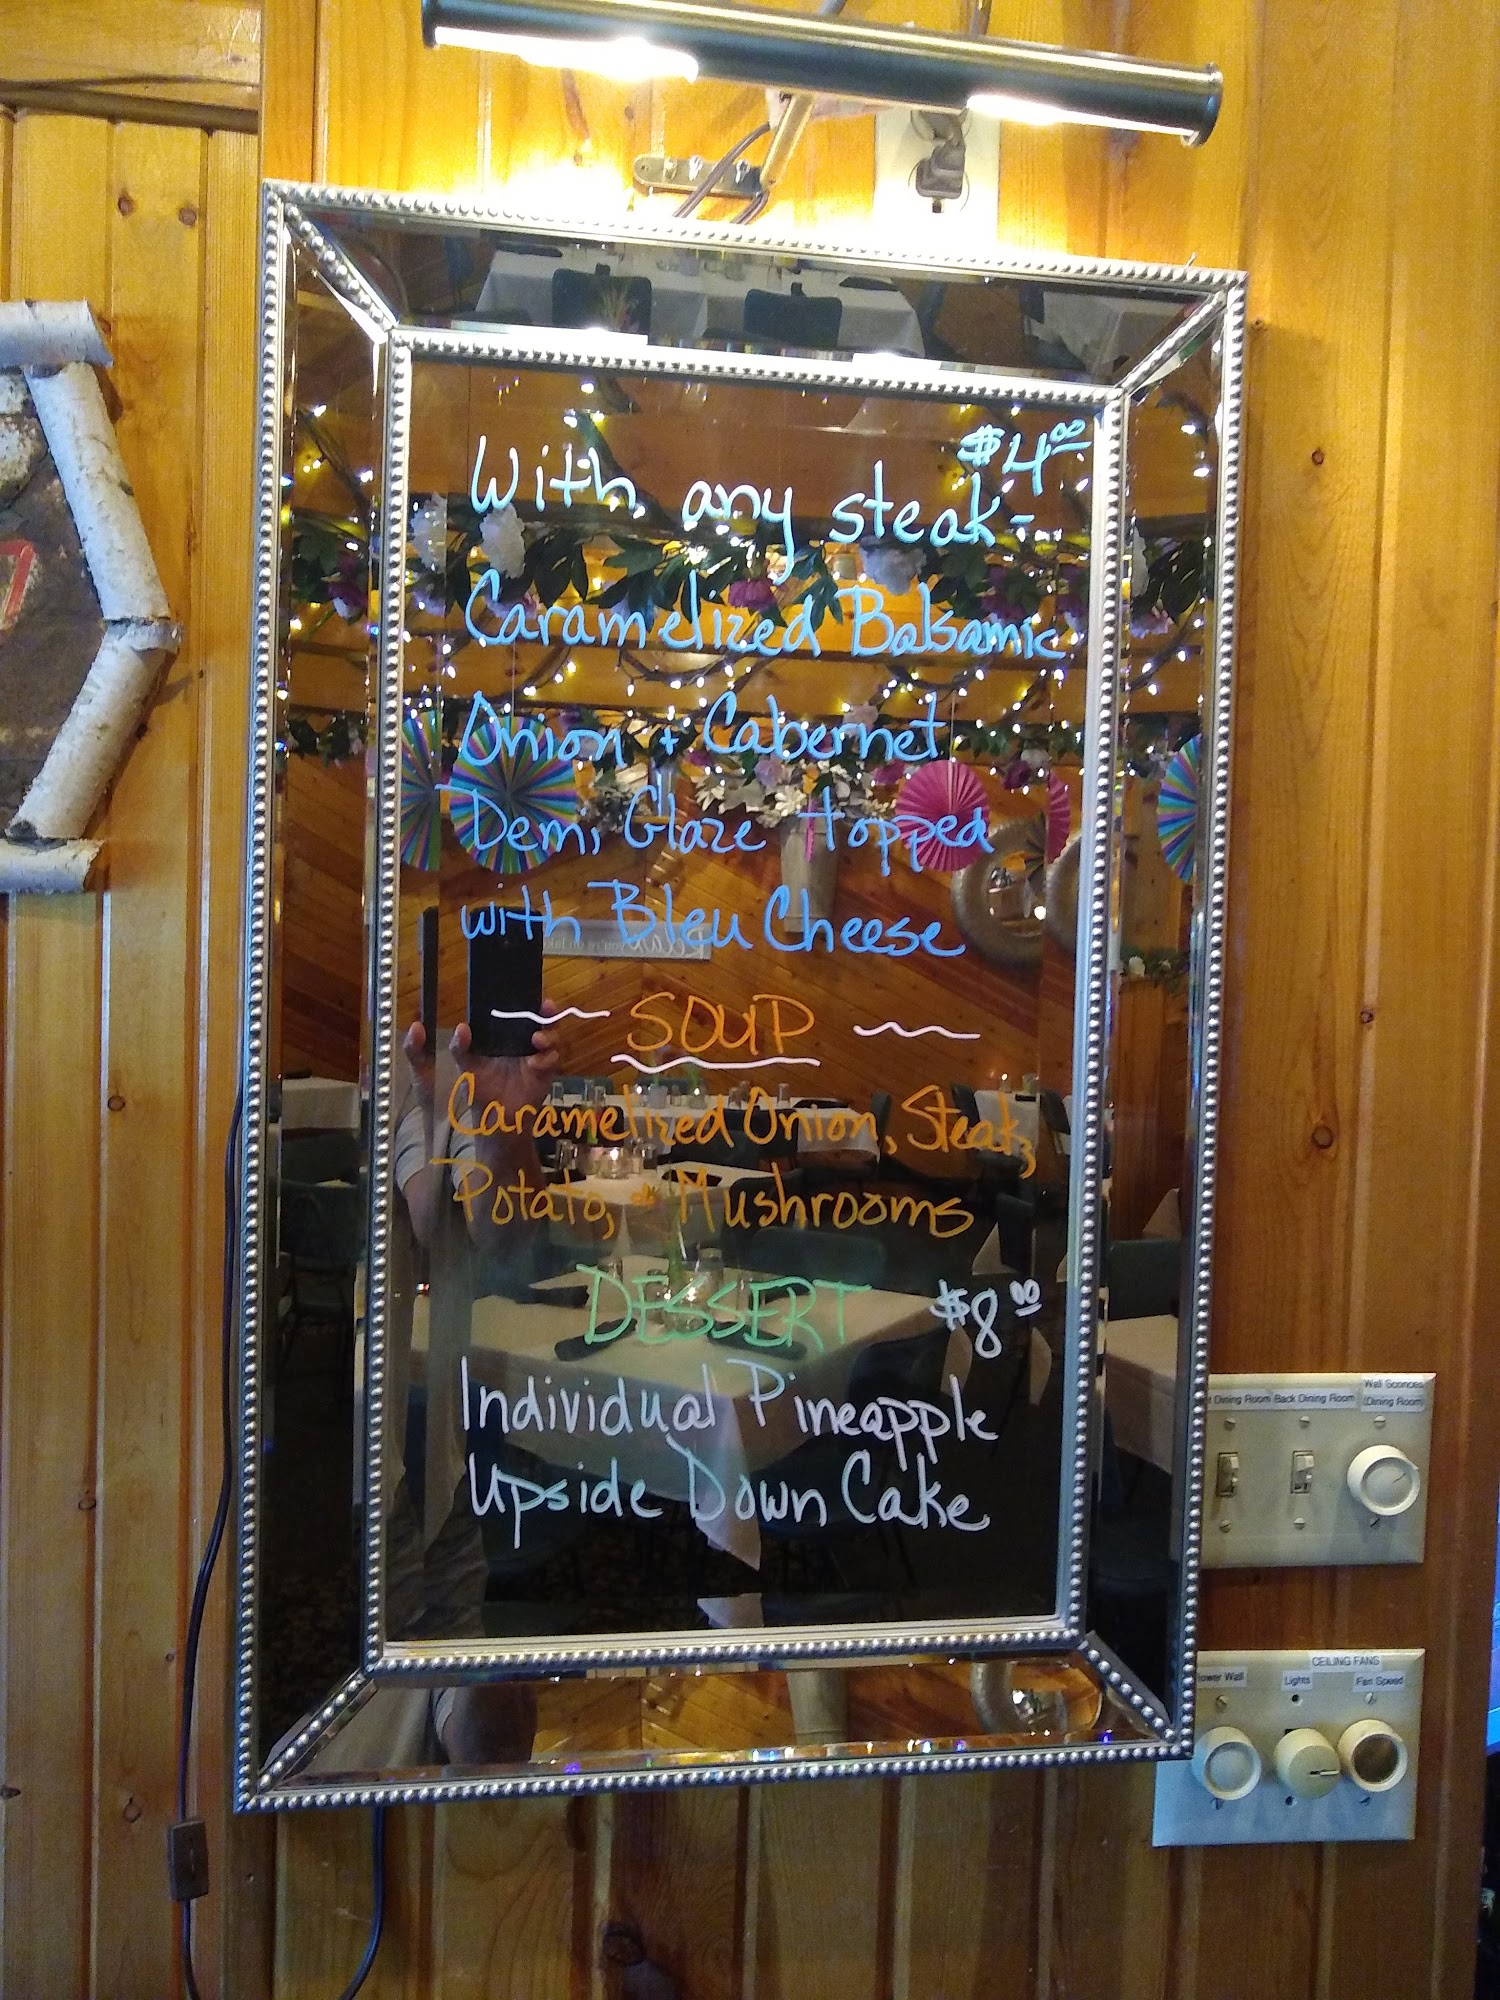 With any steak- $4.00
Caramelized Balsamic
Onion + Cabernet
Demi Glaze topped
with Bleu Cheese
SOUP
Caramelized Onion, Steak,
Potato, + Mushrooms
DESSERT $8.00
Individual Pineapple
Upside Down Cake
Dining Room Back Dining Room Wall Sconces
(Dining Room)
CEILING FANS
Wall Lights Fan Speed